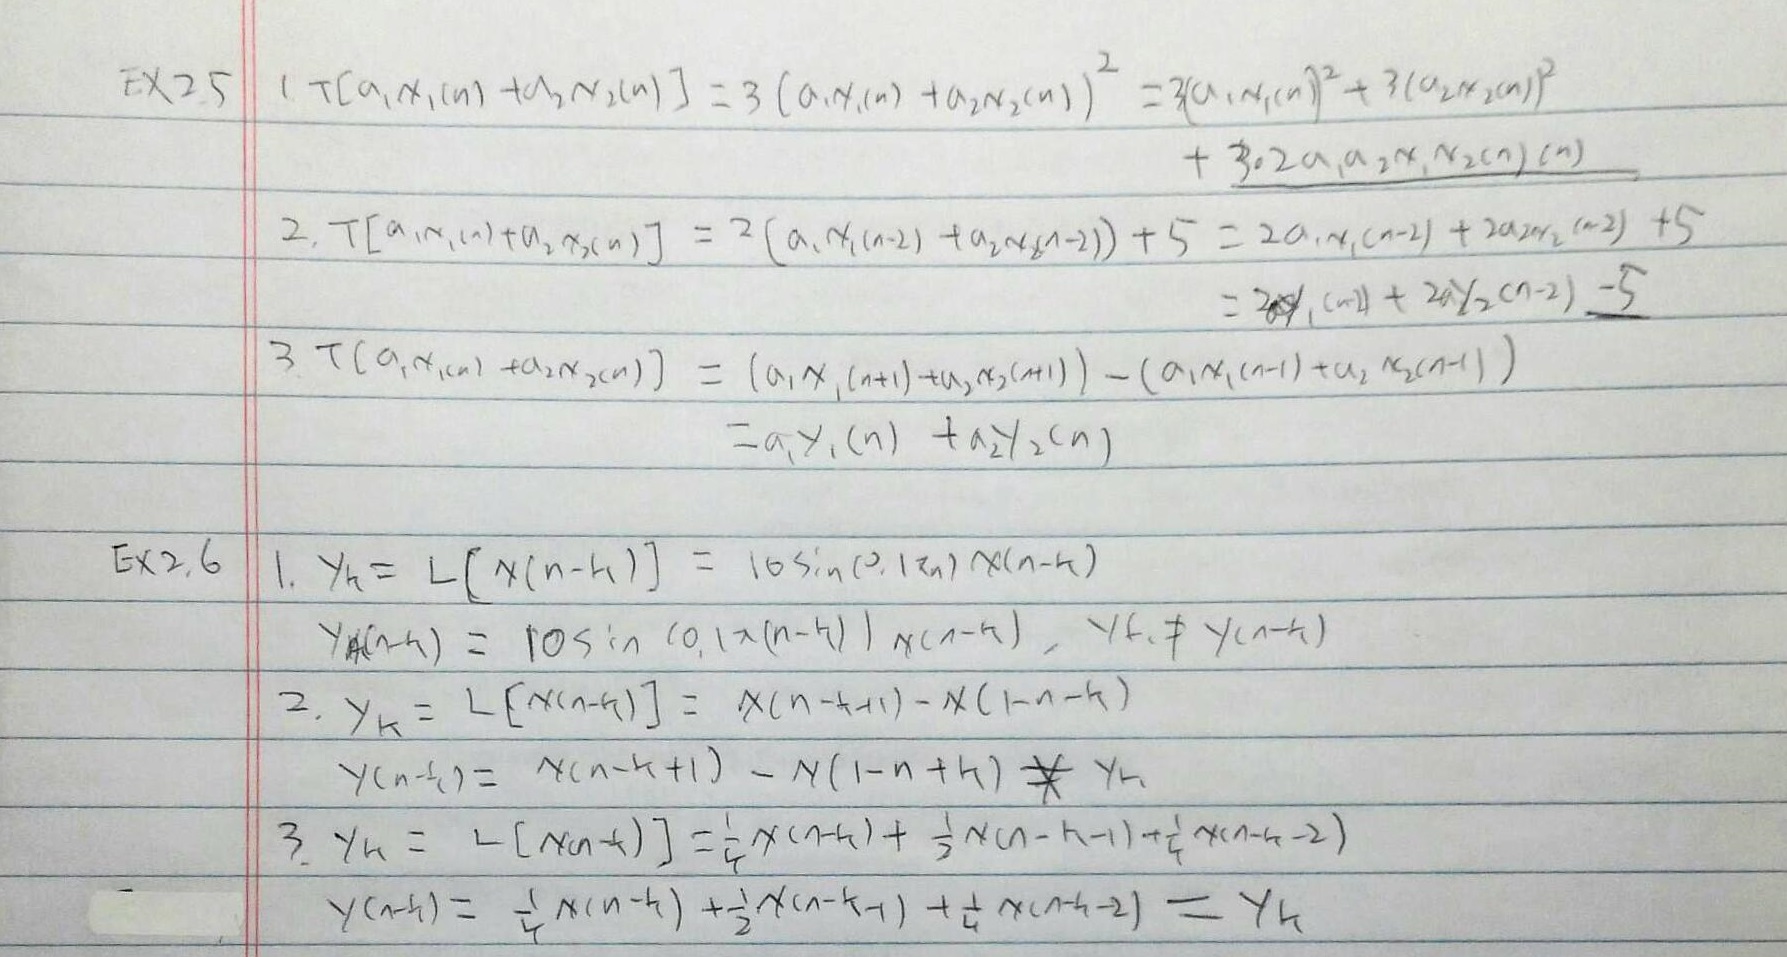 EX2.5 1. T[a₁x₁(n) + a₂x₂(n)] = 3(a₁x₁(n) + a₂x₂(n))² = 3(a₁x₁(n))² + 3(a₂x₂(n))²
+ 3·2a₁a₂x₁x₂(n)(n)
2. T[a₁x₁(n) + a₂x₂(n)] = 2(a₁x₁(n-2) + a₂x₂(n-2)) + 5 = 2a₁x₁(n-2) + 2a₂x₂(n-2) + 5
= 2y₁(n-2) + 2ay₂(n-2) -5
3. T[a₁x₁(n) + a₂x₂(n)] = (a₁x₁(n+1) + a₂x₂(n+1)) - (a₁x₁(n-1) + a₂x₂(n-1))
= a₁y₁(n) + a₂y₂(n)
EX2.6 1. yₖ = L[x(n-k)] = 10sin(0.1πn) x(n-k)
y(n-k) = 10sin(0.1π(n-k)) x(n-k), yₖ ≠ y(n-k)
2. yₖ = L[x(n-k)] = x(n-k+1) - x(1-n-k)
y(n-k) = x(n-k+1) - x(1-n+k) ≠ yₖ
3. yₖ = L[x(n-k)] = ¼x(n-k) + ½x(n-k-1) + ¼x(n-k-2)
y(n-k) = ¼x(n-k) + ½x(n-k-1) + ¼x(n-k-2) = yₖ